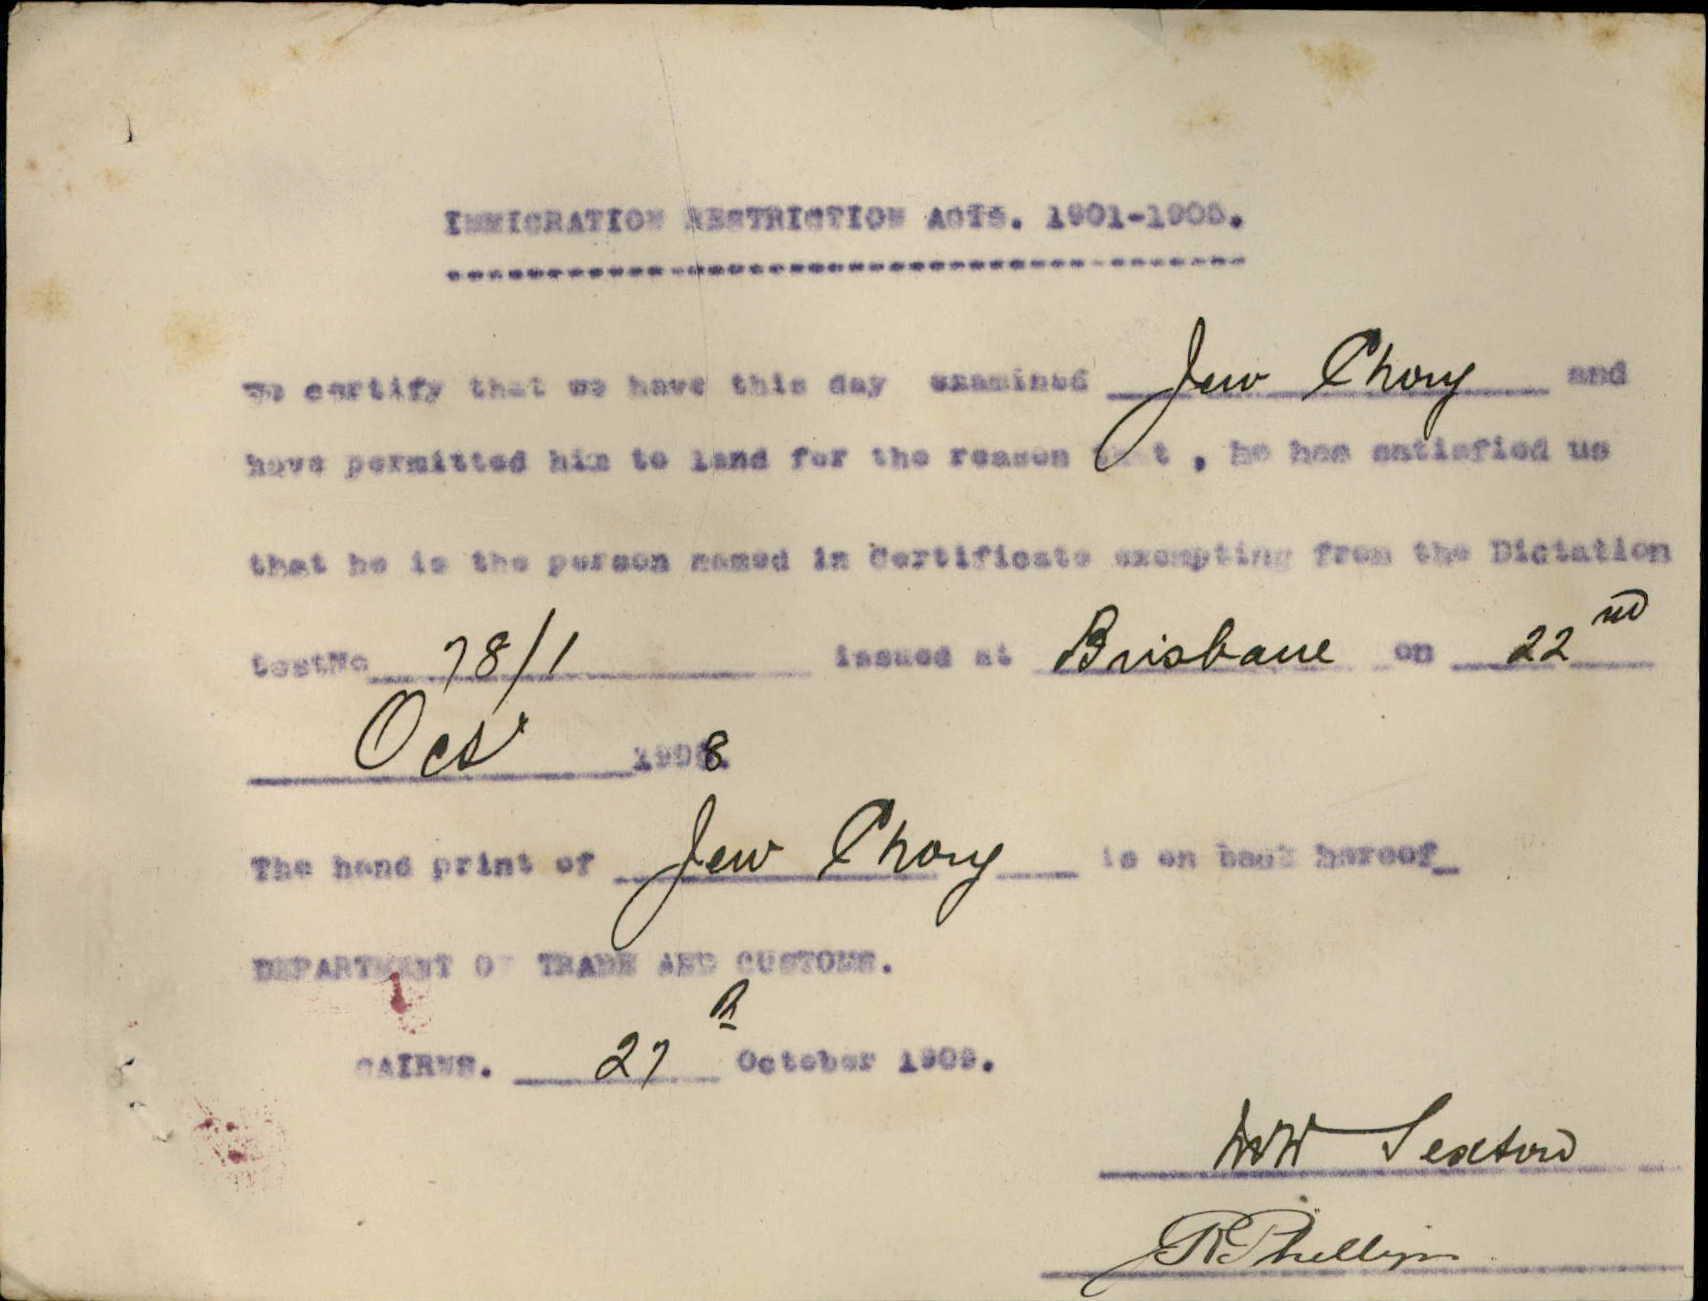 IMMIGRATION RESTRICTION ACTS. 1901-1905.
We certify that we have this day examined Jew Chong and
have permitted him to land for the reason that , he has satisfied us
that he is the person named in Certificate exempting from the Dictation
testNo 78/1 issued at Brisbane on 22nd
Oct 1908.
The hand print of Jew Chong is on back hereof
DEPARTMENT OF TRADE AND CUSTOMS.
CAIRNS. 27th October 1909.
Sexton
R Phillips